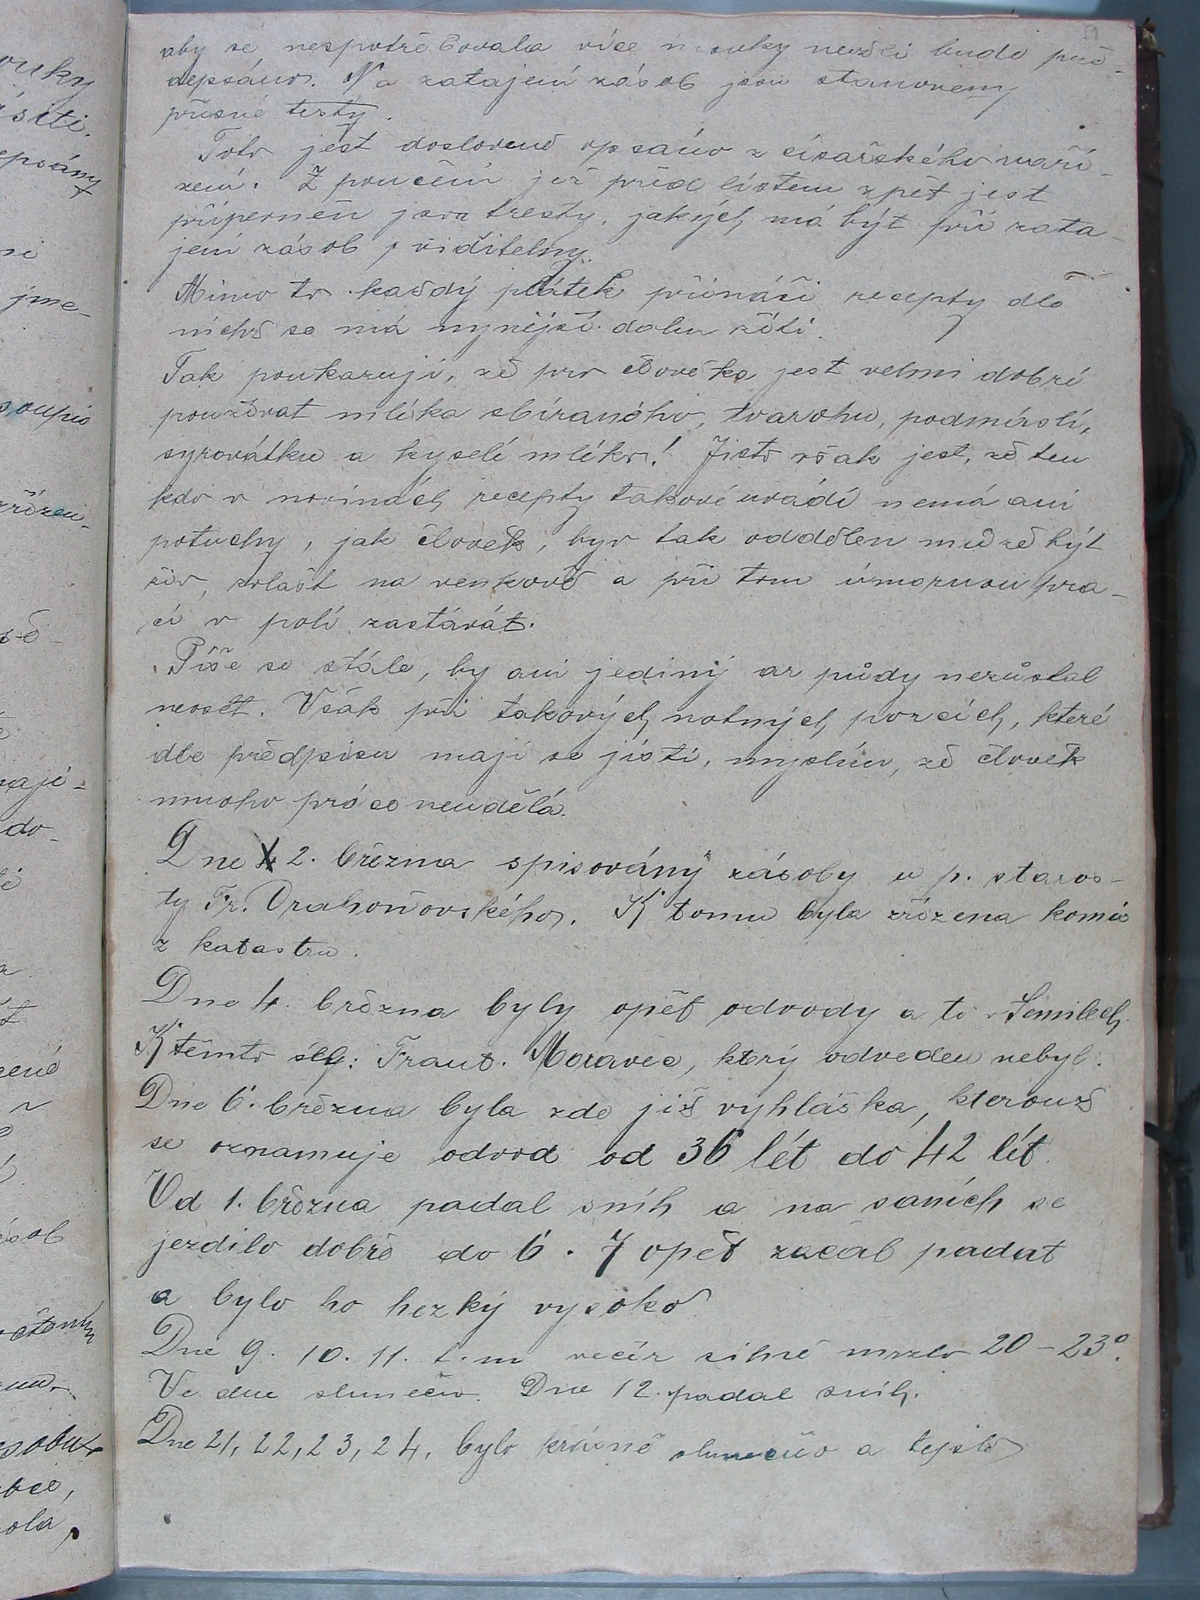 51
aby se nespotřebovala více mouky nežli bude pře-
depsáno. Na zatajení zásob jsou stanoveny
přísné testy.
Toto jest doslovně opsáno z císařského naří-
zení. Z poučení jež před listem zpět jest
připevněn jsou tresty, jakých má být při zata-
jení zásob, viditelny.
Mimo to každý plátek přináší recepty dle
nichž se má nynější dobu žíti.
Tak poukazují, že pro člověka jest velmi dobré
používat mléka sbíraného, tvarohu, podmáslí,
syrovátku a kyselé mléko! Jisto však jest, že ten
kdo v novinách recepty takové uvádí nemá ani
potuchy, jak člověk, byv tak oddělen může být
živ, zvlášt na venkově a při tom úmornou prá-
ci v polí zastávat.
Píše se stále, by ani jediný ar půdy nezůstal
neoset. Však při takových notných porcích, které
dle předpisu mají se jísti, myslím, že člověk
mnoho práce neudělá.
Dne 2. března spisovány zásoby u p. staros-
ty Fr. Drahoňovského. K tomu byla zřízena komis
z katastru.
Dne 4. března byly opět odvody a to Semilech.
K těmto šel: Frant. Moravec, který odveden nebyl.
Dne 6. března byla zde již vyhláška, kterouž
se oznamuje odvod od 36 lét do 42 lét.
Od 1. března padal sníh a na saních se
jezdilo dobře do 6. 7 opět začal padat
a bylo ho hezký vysoko.
Dne 9. 10. 11. t.m večer silně mrzlo 20 – 23°.
Ve dne slunečno. Dne 12. padal sníh.
Dne 21, 22, 23, 24, bylo krásně slunečno a teplo